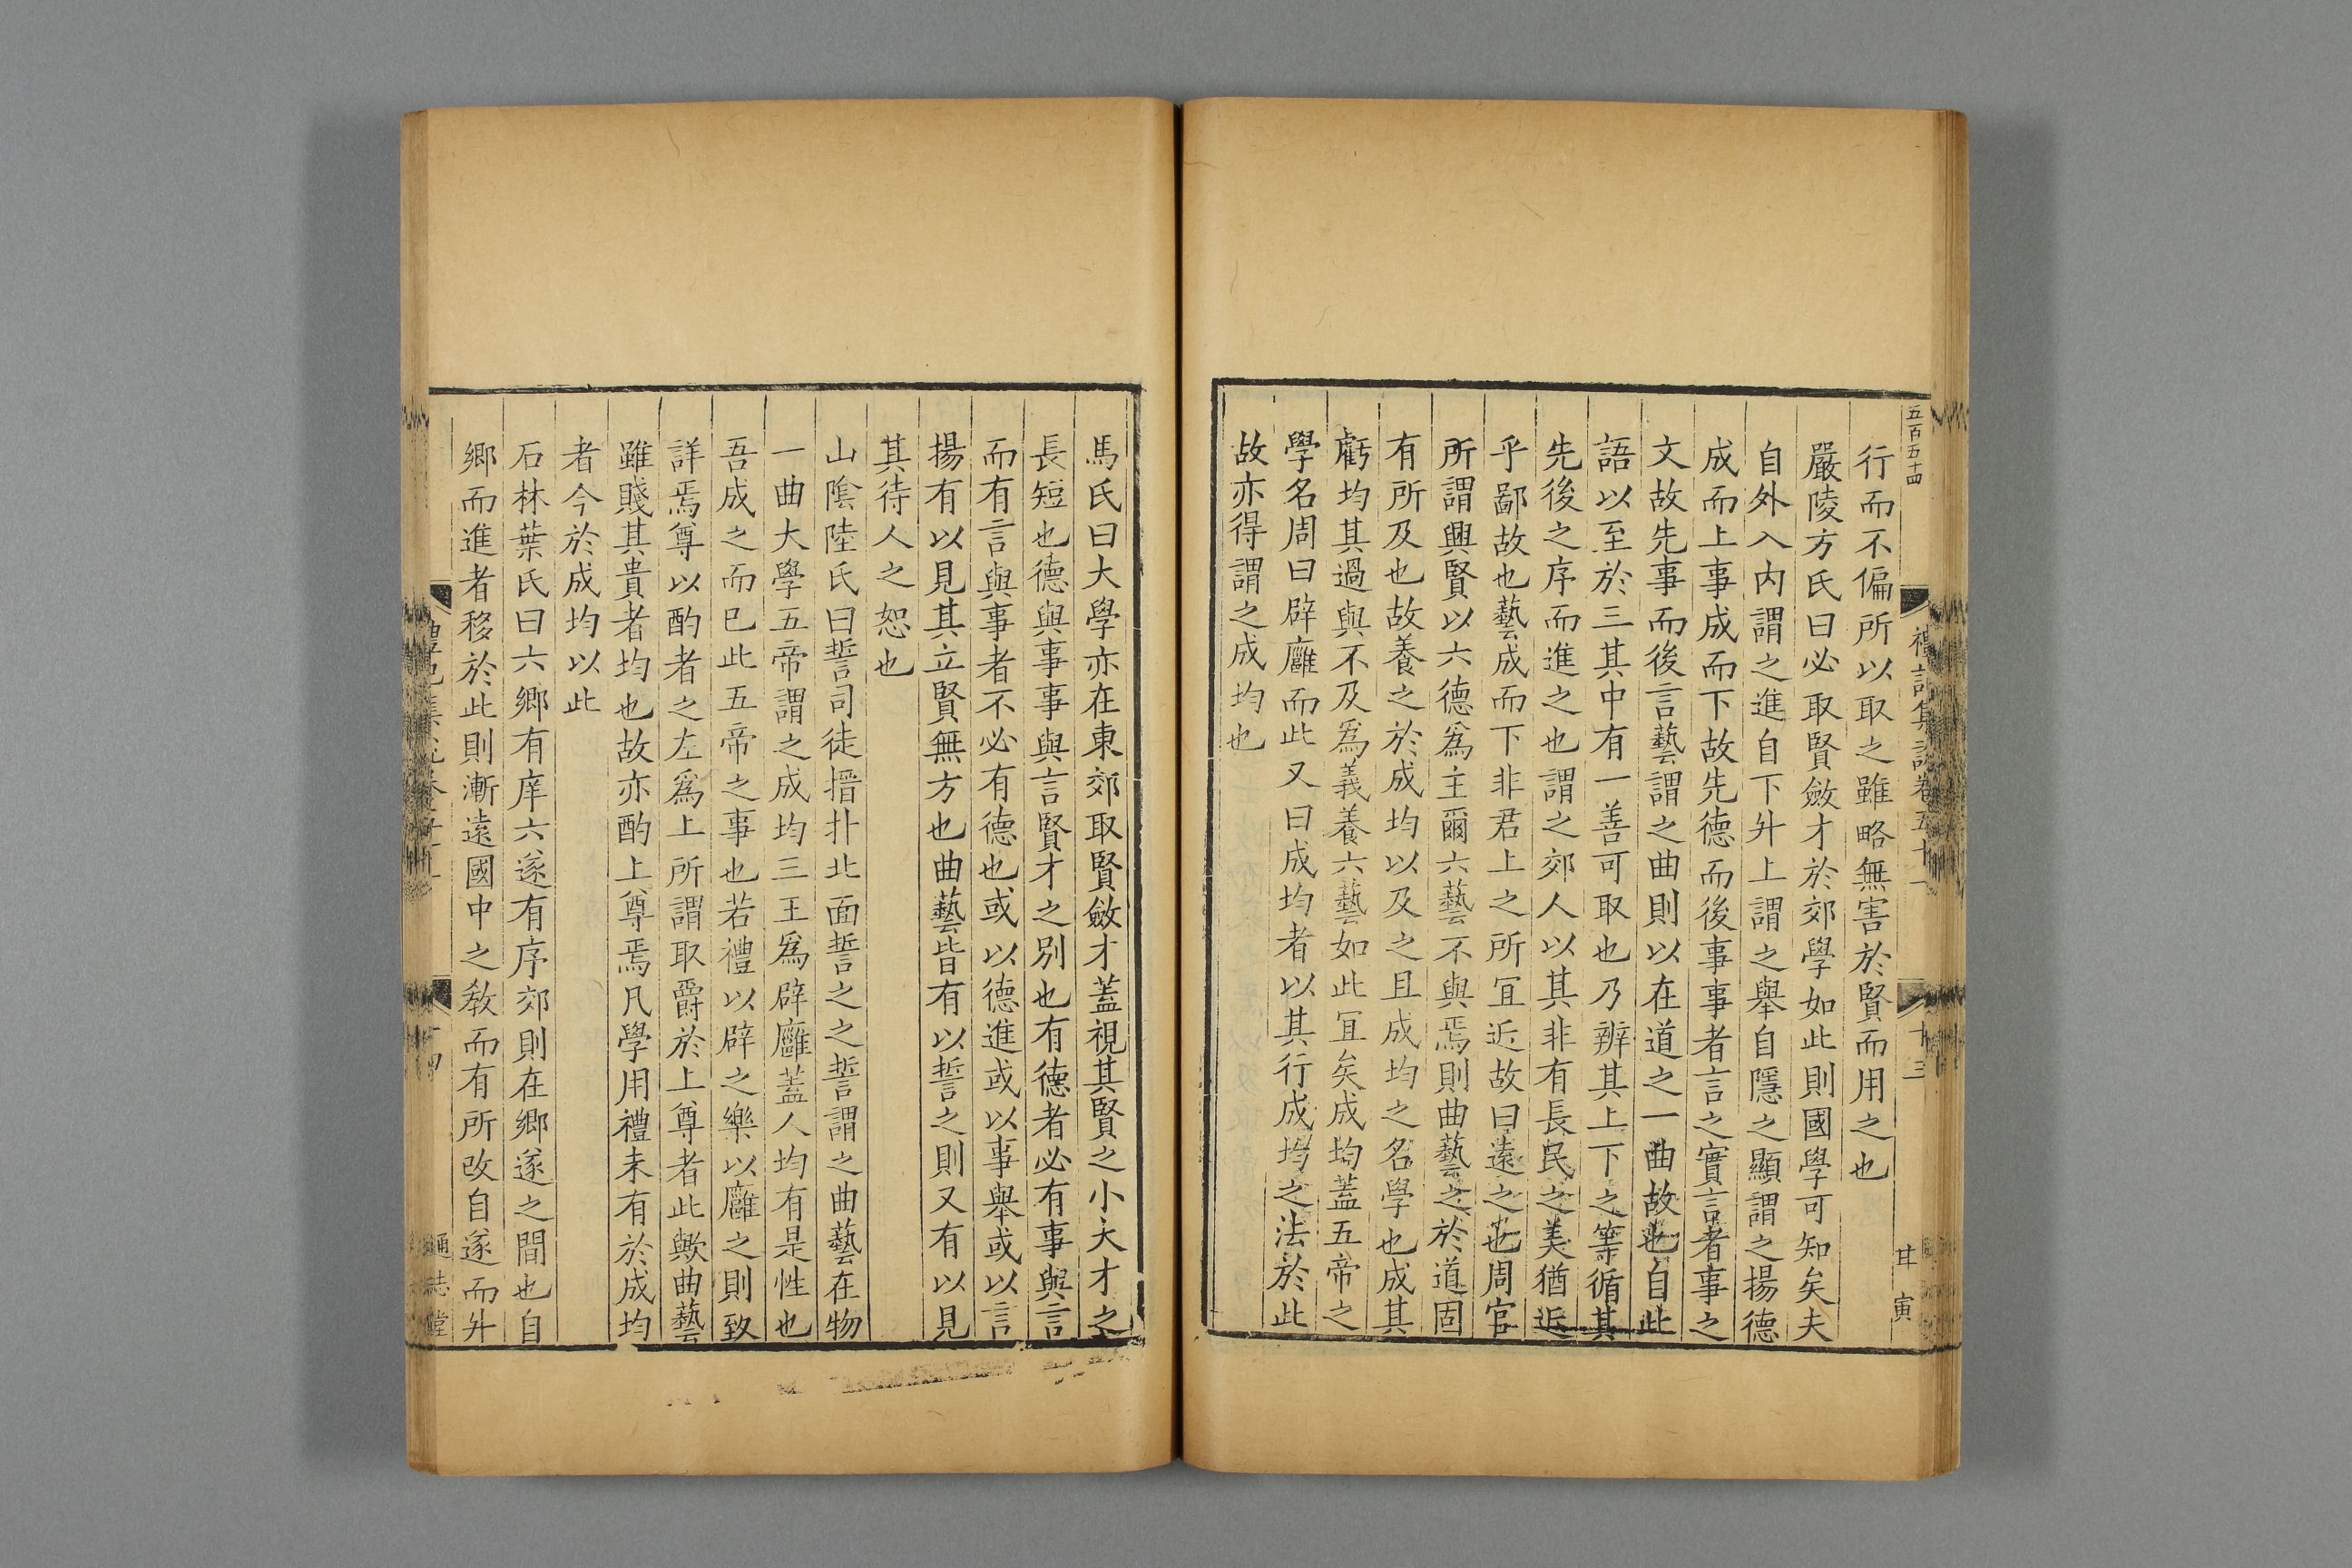 五百五十四
禮記集說卷五十一
十三
甘寅
行而不偏所以取之雖略無害於賢而用之也
嚴陵方氏曰必取賢斂才於郊學如此則國學可知矣夫
自外入内謂之進自下升上謂之舉自隱之顯謂之揚德
成而上事成而下故先德而後事事者言之實言者事之
文故先事而後言藝謂之曲則以在道之一曲故也自此
語以至於三其中有一善可取也乃辨其上下之等循其
先後之序而進之也謂之郊人以其非有長民之美猶近
乎鄙故也藝成而下非君上之所冝近故曰遠之也周官
所謂興賢以六德爲主爾六藝不與焉則曲藝之於道固
有所及也故養之於成均以及之且成均之名學也成其
虧均其過與不及爲義養六藝如此冝矣成均蓋五帝之
學名周曰辟廱而此又曰成均者以其行成均之法於此
故亦得謂之成均也
馬氏曰大學亦在東郊取賢斂才蓋視其賢之小大才之
長短也德與事事與言賢才之別也有德者必有事與言
而有言與事者不必有德也或以德進或以事舉或以言
揚有以見其立賢無方也曲藝皆有以誓之則又有以見
其待人之恕也
山陰陸氏曰誓司徒搢扑北面誓之之誓謂之曲藝在物
一曲大學五帝謂之成均三王爲辟廱蓋人均有是性也
吾成之而已此五帝之事也若禮以辟之樂以廱之則致
詳焉尊以酌者之左爲上所謂取爵於上尊者此歟曲藝
雖賤其貴者均也故亦酌上尊焉凡學用禮未有於成均
者今於成均以此
石林葉氏曰六鄉有庠六遂有序郊則在鄉遂之間也自
鄉而進者移於此則漸遠國中之敎而有所改自遂而升
十四
通志堂